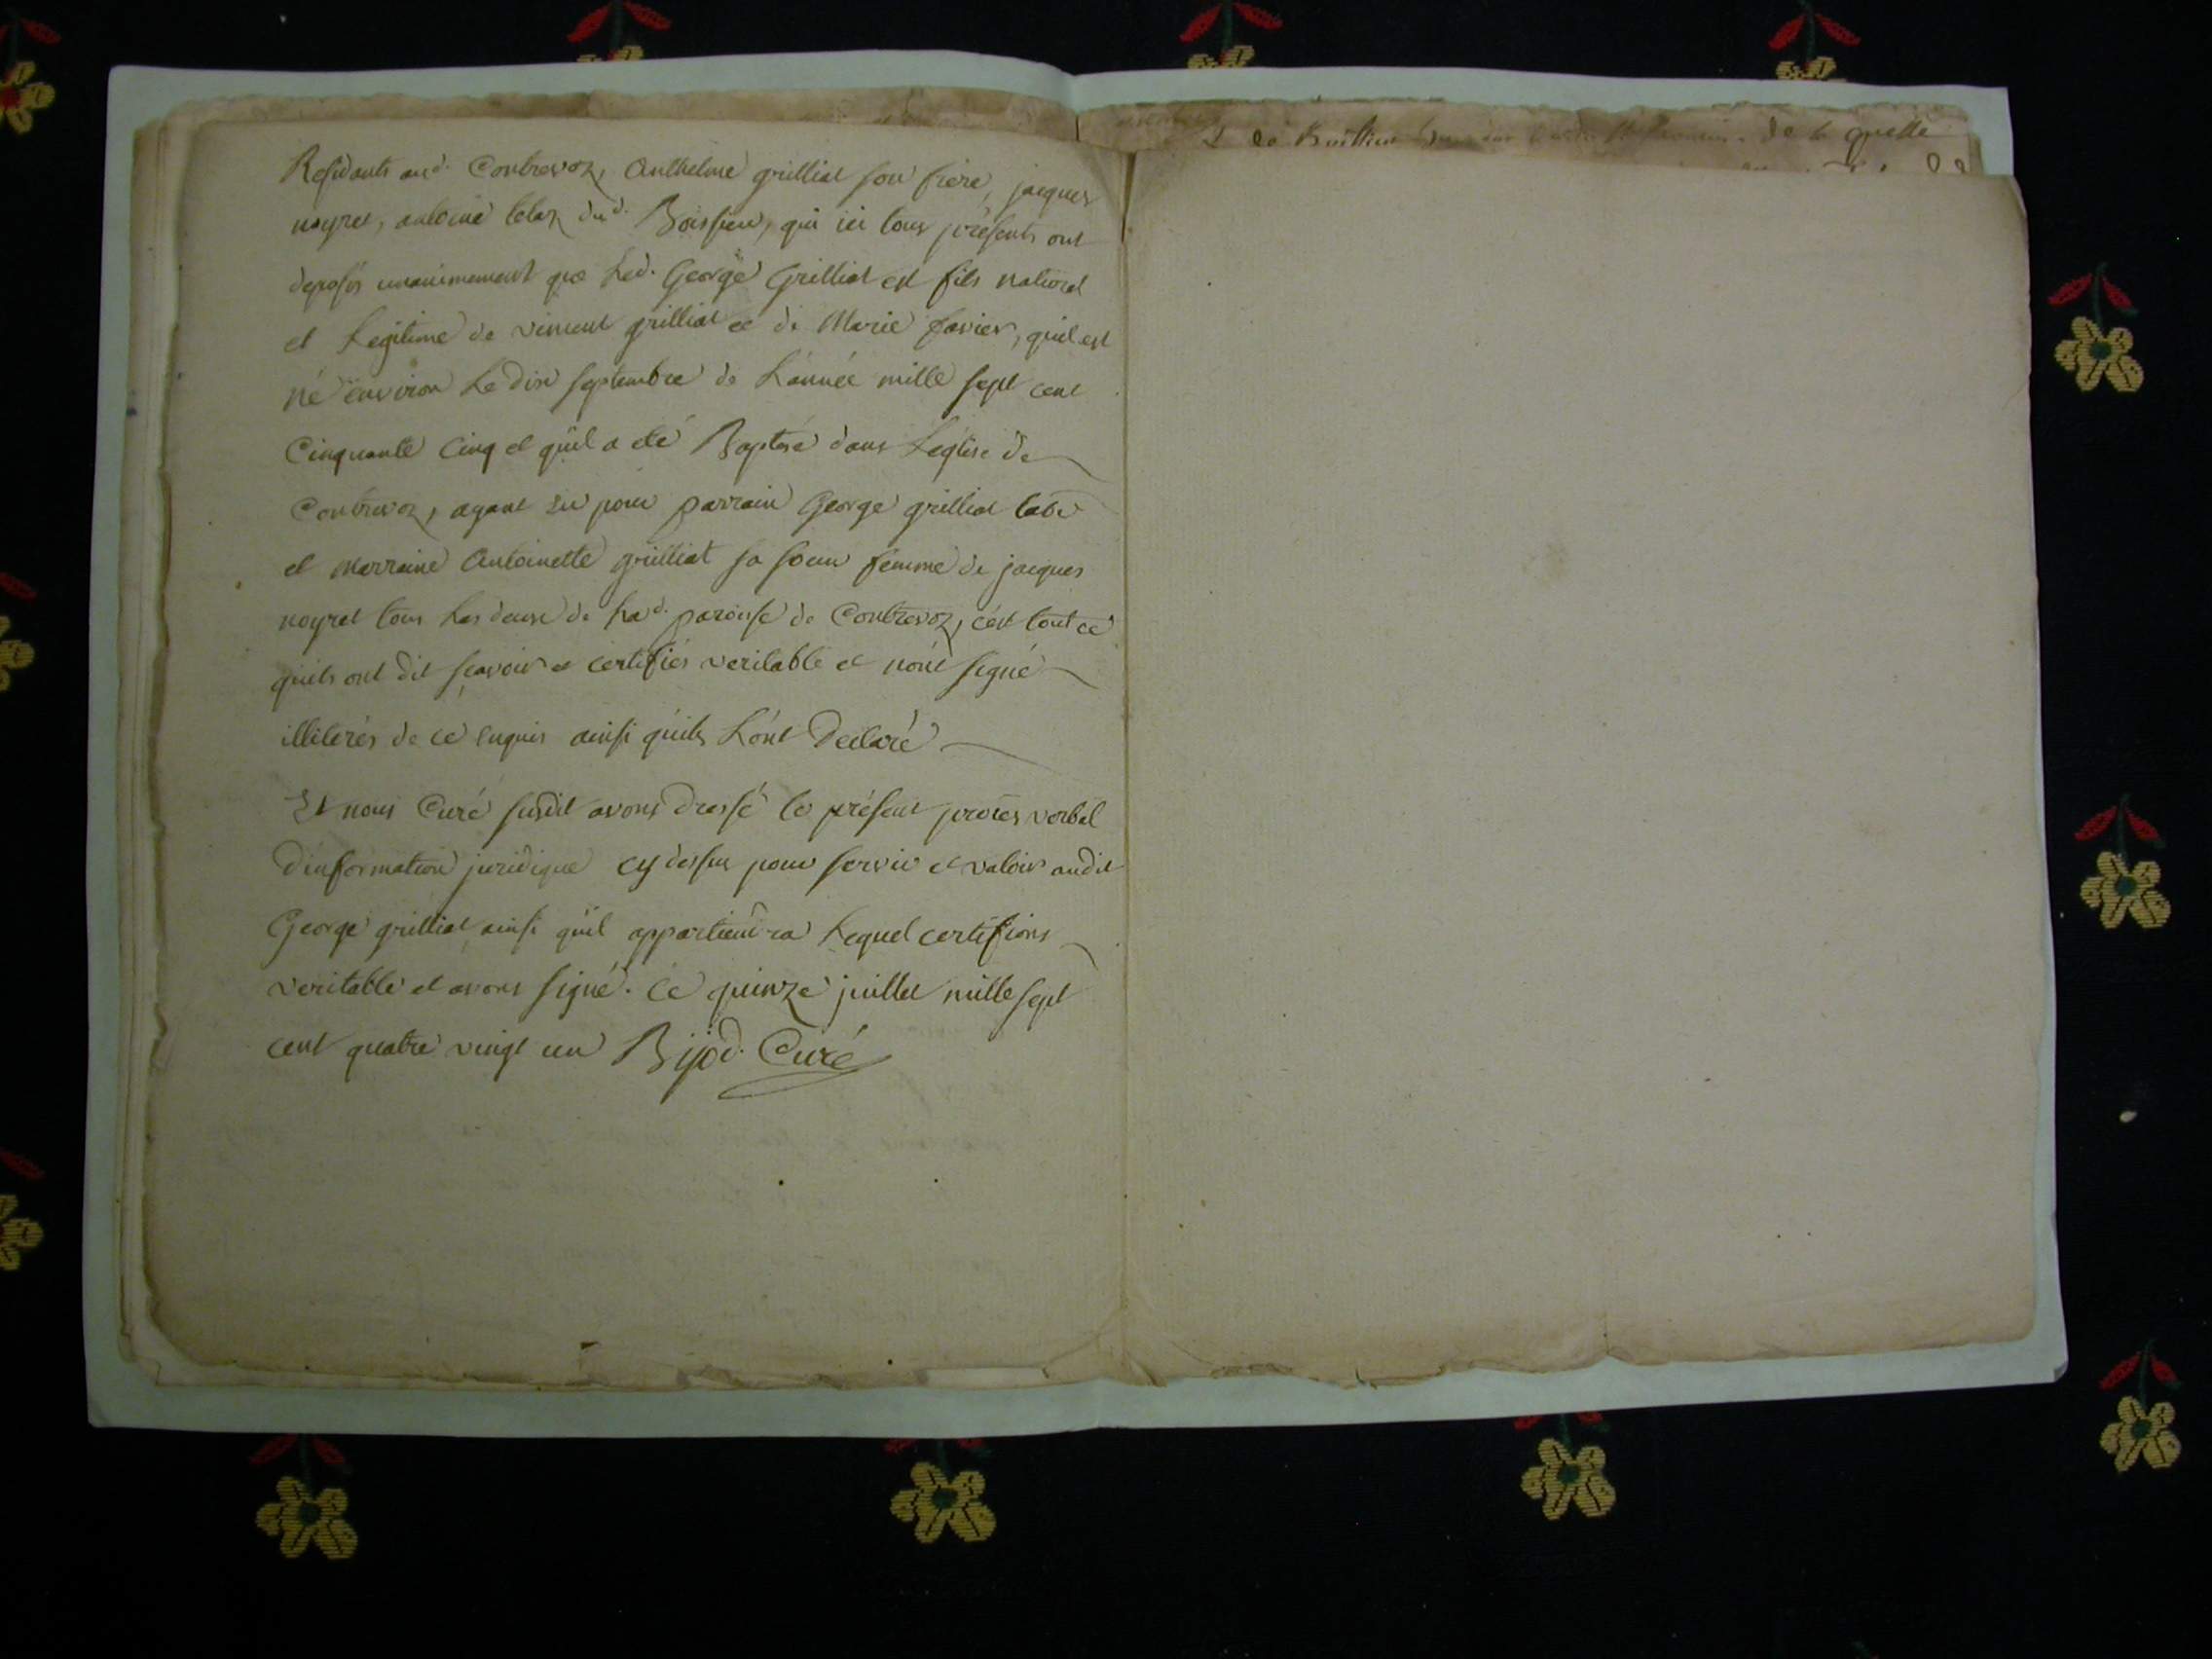 Residants aud. Contrevoz, Anthelme grilliat son frere, jacques
noyret, antoine belaz dud. Boissieu, qui ici tous présents ont
deposés unanimement que Led. George Grilliat est fils naturel
et Legitime de vincent grilliat et de Marie favier, quil est
né environ Le dix septembre de L'année mille sept cent
Cinquante Cinq et qu'il a été Baptisé dans L'eglise de
Contrevoz, ayant eu pour parrain George grilliat
et marraine Antoinette grilliat sa soeur femme de jacques
noyret tous Les deux de Lad. paroisse de Contrevoz, c'est tout ce
quils ont dit sçavoir et certifiés veritable et n'ont signé
illiterés de ce enquis ainsi qu'ils L'ont Declaré
Et nous Curé susdit avons Dressé le présent procès verbal
D'information juridique cy dessus pour servir et valoir audit
George grilliat ainsi qu'il appartiendra Lequel certifions
veritable et avons signé. Ce quinze juillet mille sept
cent quatre vingt un Bijod. Curé
de la quelle